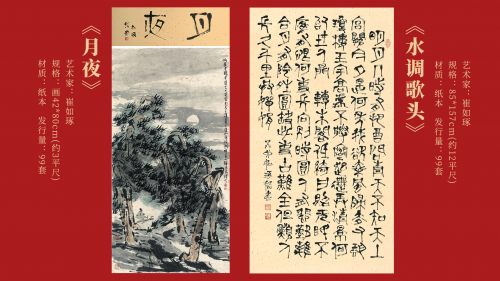 《月夜》
艺术家：崔如琢
规格：画42*80cm(约3平尺)
材质：纸本 发行量：99套
月夜
明月幾時有把酒問青天不知天上
宮闕今夕是何年我欲乘風歸去又恐
瓊樓玉宇高處不勝寒起舞弄清影何
似在人間轉朱閣低綺戶照無眠不
應有恨何事長向別時圓人有悲歡離
合月有陰晴圓缺此事古難全但願人
長久千里共嬋娟
《水调歌头》
艺术家：崔如琢
规格：85*157cm(约12平尺)
材质：纸本 发行量：99套